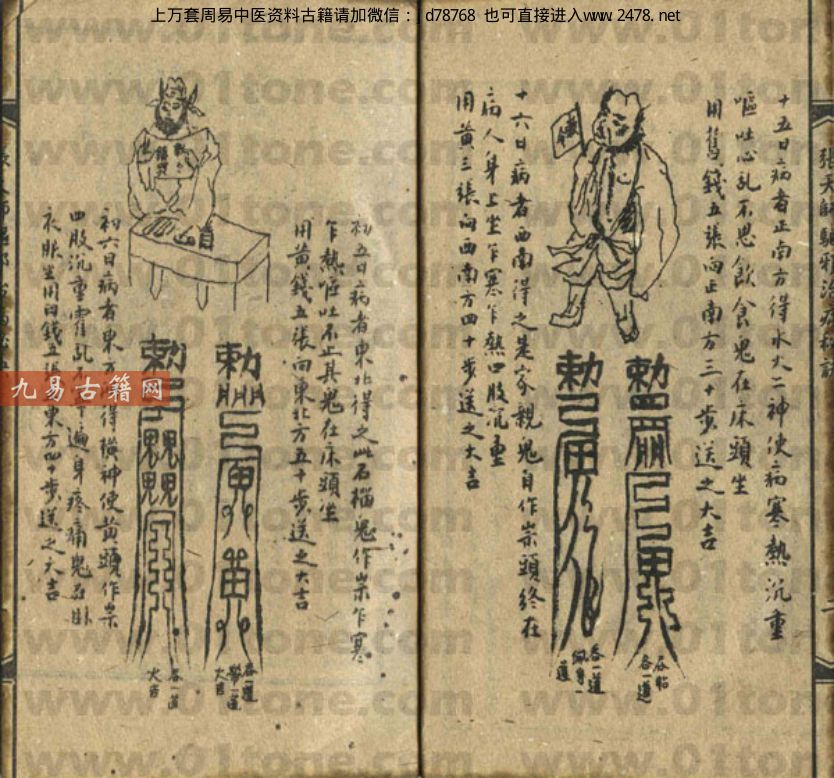 上万套周易中医资料古籍请加微信： d78768 也可直接进入www.2478.net
十五日病者正南方得水火二神使病寒熱沉重
嘔吐心乱不思飲食鬼在床頭坐
用舊錢五張向正南方三十步送之大吉
十六日病者西南得之是家親鬼自作祟頭終在
病人身上坐乍寒乍熱四肢沉重
用黄三張向西南方四十步送之大吉
勅
勅
吞一道
初五日病者東北得之此石榴鬼作祟乍寒
乍熱嘔吐不止其鬼在床頭坐
用黄錢五張向東北方五十步送之大吉
初六日病者東方得橫神使黄頭作祟
四肢沉重霍乱不下遍身疼痛鬼在卧
衣服坐用白錢五張東方四十步送之大吉
勅
勅
吞一道
大吉
吞一道
大吉
九易古籍网
www.01tone.com